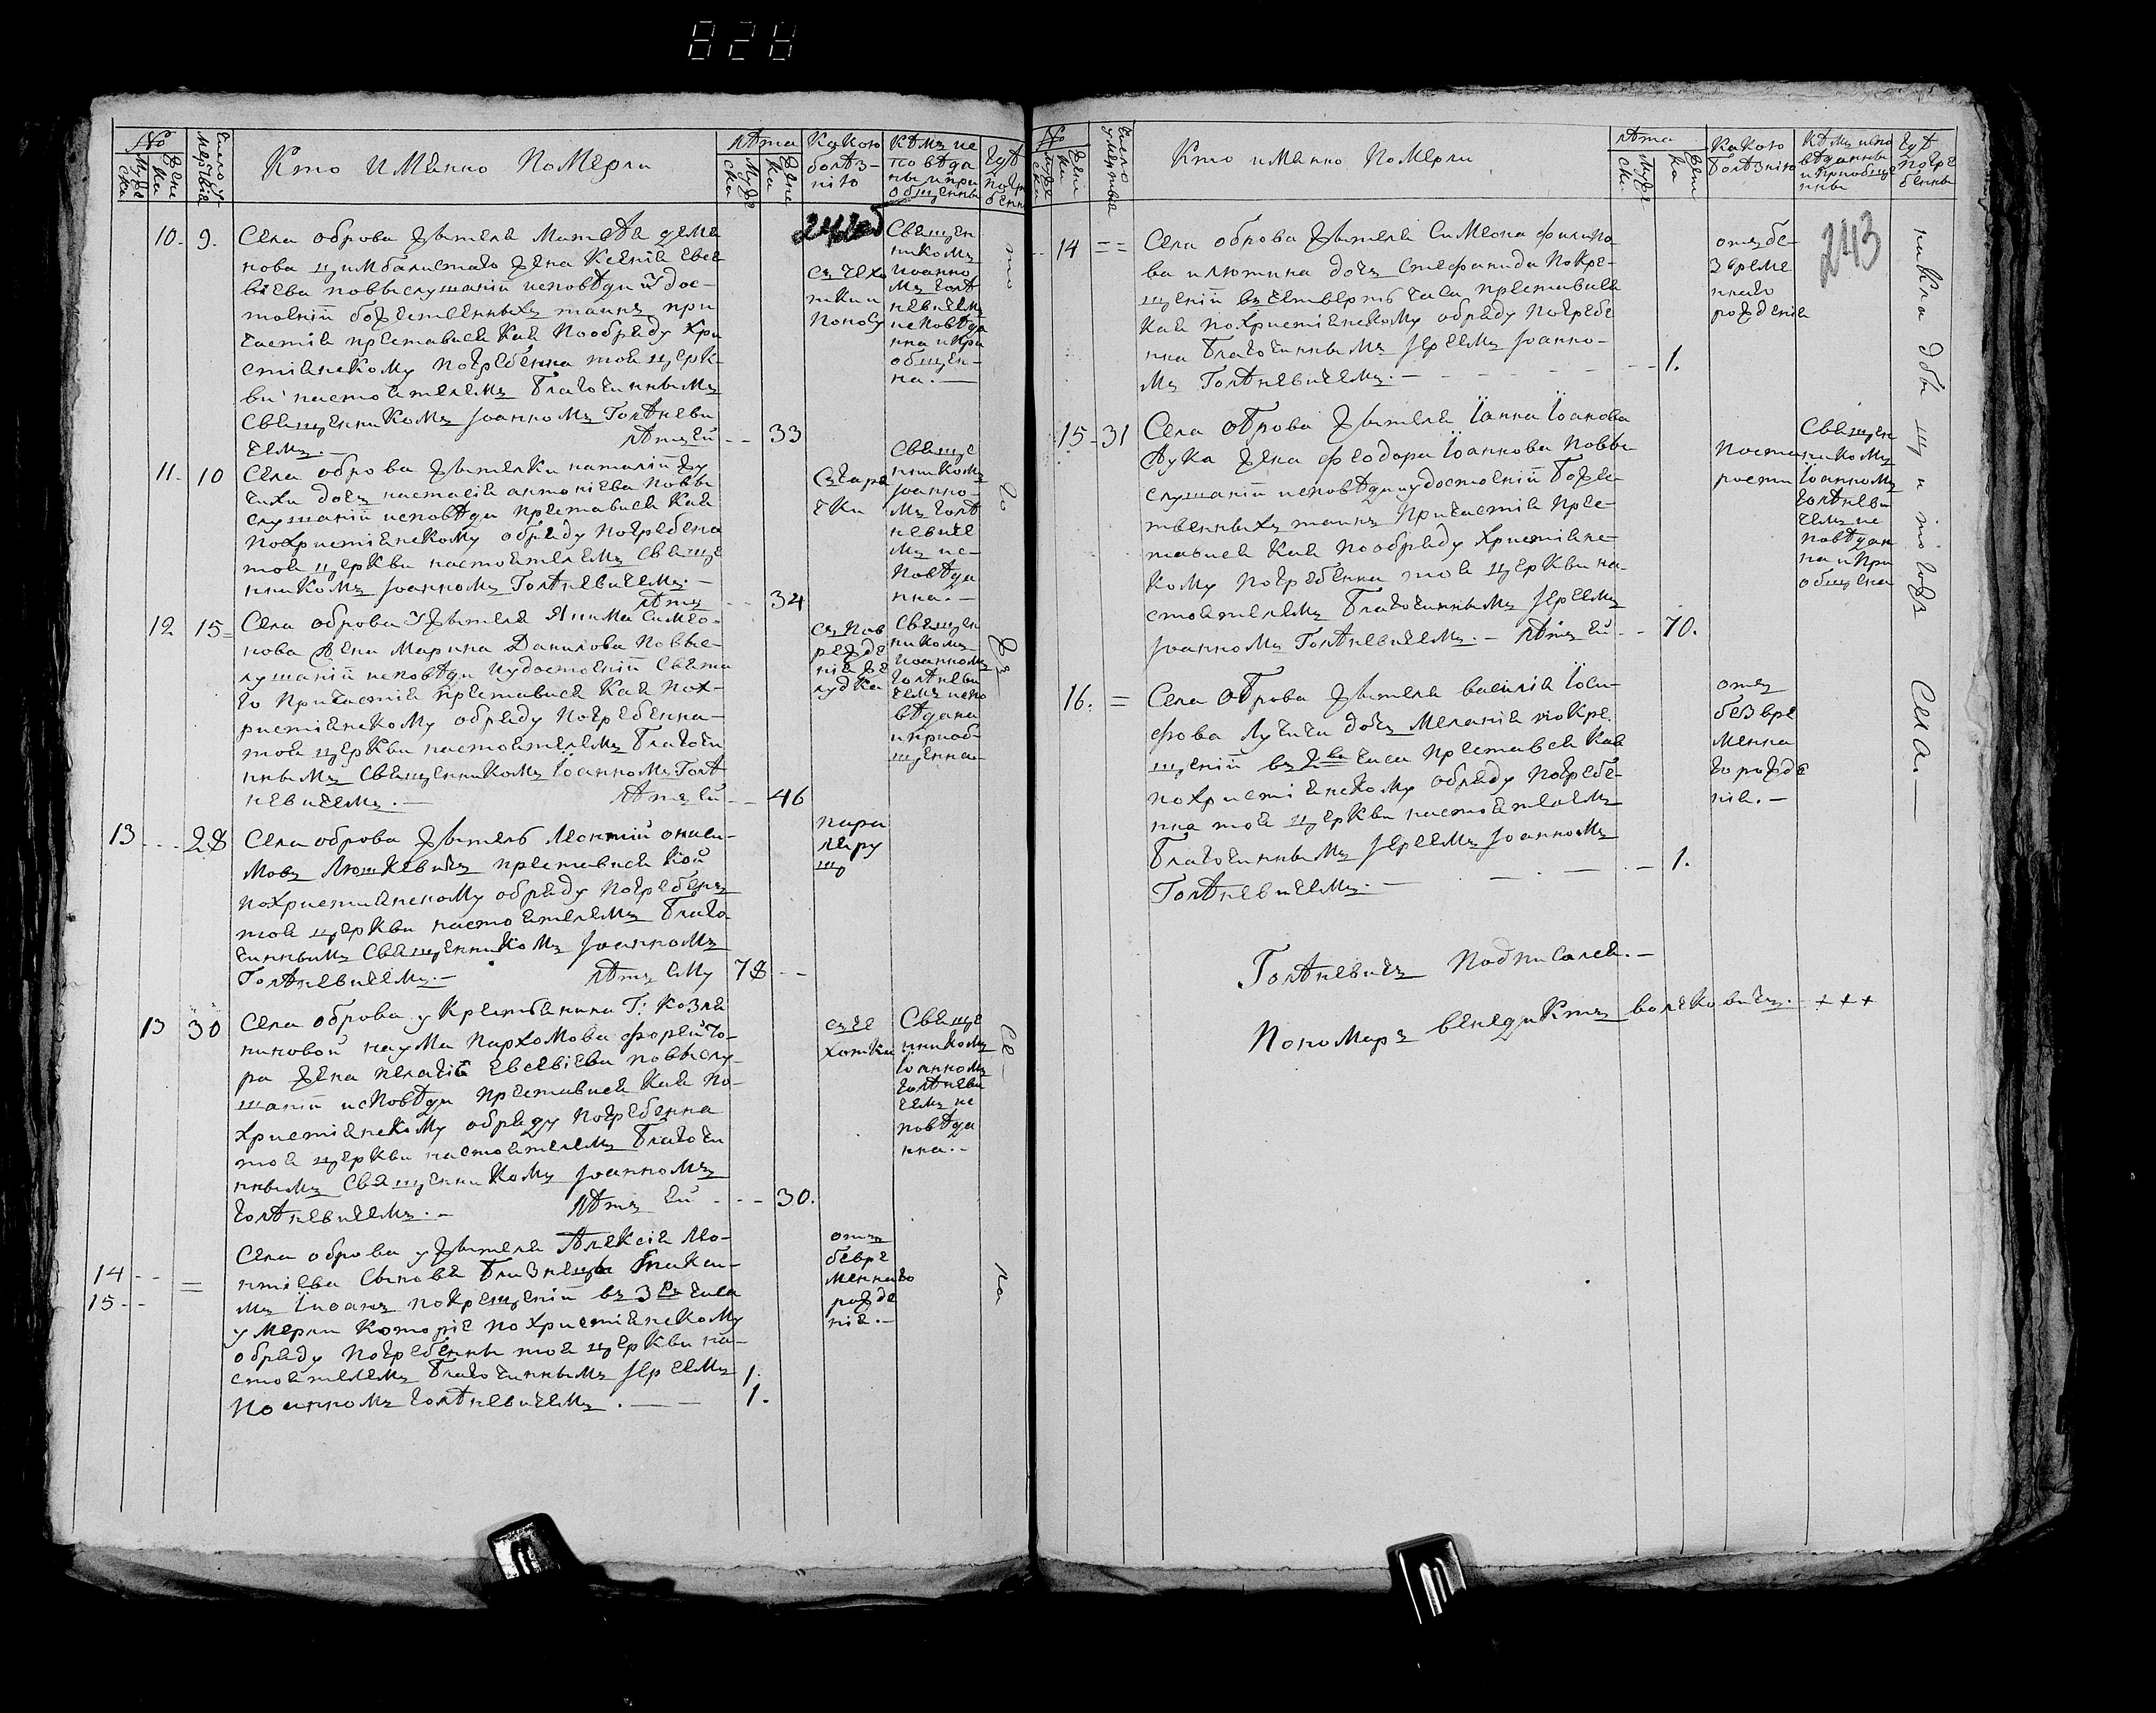 828
№
Муже
ска
Жене
ка
Число у
мерткія
Кто Именно Померли
лѣта
Муже
ска
Жене
ка
Какою
болѣз-
нію
Кѣмъ ис
повѣда
ны и при
общенны
гдѣ
погре
бенны
242об
10. 9. Села оброва жытеля Матѳѣя деме
нова цимбалистаго жена Ксенія Евсе
віева повыслушаніи исповѣди и удос-
тоеніи божественныхъ таинъ при
частія преставися Кая пообряду Хри
стіянскому погребенна тоя церк
ви настоятелемъ Благочиннымъ
Священникомъ Іоанномъ Голѣневи
чемъ.— лѣтъ ей -- 33
съ чехо
тки и
поносу
Священ
никомъ
Іоанно
мъ голѣ
невичемъ
исповѣда
нна и при
общен-
на.—
11. 10 Села оброва жытелки наталіи жу
чихи дочь настасія антоніева повы
слушаніи исповѣди преставися Кая
похристіянскому обряду погребена
тоя церкви настоятелемъ Священ
нникомъ Іоанномъ Голѣневичемъ.—
лѣтъ -- 34
съ гаря
чки
Свяще
нникомъ
Іоанно-
мъ голѣ
невиче
мъ ис-
повѣда
нна.—
12 15= Села оброва Жытеля Якима Симео-
нова Жена Марина Данилова повы-
слушаніи исповѣди иудостоеніи Свята
го Причастія преставися Кая пох-
ристіянскому обряду погребенна-
тоя церкви настоятелемъ Благочи
ннымъ Священникомъ Іоанномъ Голѣ
невичемъ.— лѣтъ ей -- 46
съ пов
режде
нія же
лудка
Священ
никомъ
Иоанномъ
голѣневи
чемъ испо
вѣдана
и приоб-
щенная
13 -- 28 Села оброва Жытель Леонтій ониси-
мовъ Люшкевичъ преставися кой
похристиянскому обряду погребенъ
тоя церкви настоятелемъ Благо
чиннымъ Священникомъ Іоанномъ
Голѣневичемъ.— лѣтъ ему 78 --
пара
леру
шъ
13 30 Села оброва у Крестьянина Г: Козля
ниновой наума Пархомова форейто-
ра жена пелагія Евсевіева повыслу-
шаніи исповѣди преставися Кая по-
христіянскому обряду погребенна
тоя церкви настоятелемъ Благочи
ннымъ Священникомъ Іоанномъ
голѣневичемъ.— лѣтъ ей --- 30.
съ че
хотки
Свяще
нникомъ
Іоанномъ
голѣневи
чемъ ис
повѣда
нна.—
14 -- =
15 --
Села оброва у жытеля Алексія Лео-
нтіева Сыновя Близнецы
мъ покрещеніи въ 3 часа
умерли Которіе похристіянскому
обряду погребенны тоя церкви на-
стоятелемъ Благочиннымъ Іереемъ 1.
Иоанномъ голѣневичемъ.—— 1.
отъ
безвре
меннаго
рожде
нія.—
то
го
жъ
Се-
ла
№
Муже
ска
Жене
ка
Число
умертвія
Кто именно Померли
лѣта
Муже
ска
Жен
ка
Какою
Болѣзнію
Кѣмъ испо
вѣданны
и приобще
нны
гдѣ
погре
бенны
243
14 == Села оброва Жытеля Симеона филипо-
ва илютина дочь Стефанида покре-
щеніи въ четвертъ часа преставися
Кая похристіянскому обряду погребе
нна Благочиннымъ Іереемъ Іоанно-
мъ Голѣневичемъ.— -- 1.
отъ бе-
звреме
нного
рожденія
15-31 Села Оброва Жытеля Іоанна Іоанова
Лука жена феодора Іоаннова повы
слушаніи исповѣди иудостоеніи Боже-
твенныхъ таинъ причастія пре-
тавися Кая пообряду Християнс-
кому погребенна тоя церкви на-
стоятелемъ Благочиннымъ Іереемъ
Іоанномъ Голѣневичемъ.— лѣтъ ей -- 70.
Постарости
Священ
никомъ
Іоанномъ
голѣневи
чемъ ис
повѣдан
на и при
общена
16. = Села Оброва Жытеля василія Іоси-
фова Лучича дочь Меланія покре-
щеніи въ 2 часа Преставися Кая
похристіянскому обряду погребе-
нна тоя церкви настоятелемъ
Благочиннымъ Іереемъ Іоанномъ
Голѣневичемъ.— -- 1.
отъ
безвре
менна
го рожде
нія.—
Голѣневичъ Подписалея.—
Пономаръ венедиктъ волековичъ. +++
на Кла дбы щ и того жъ Села.—